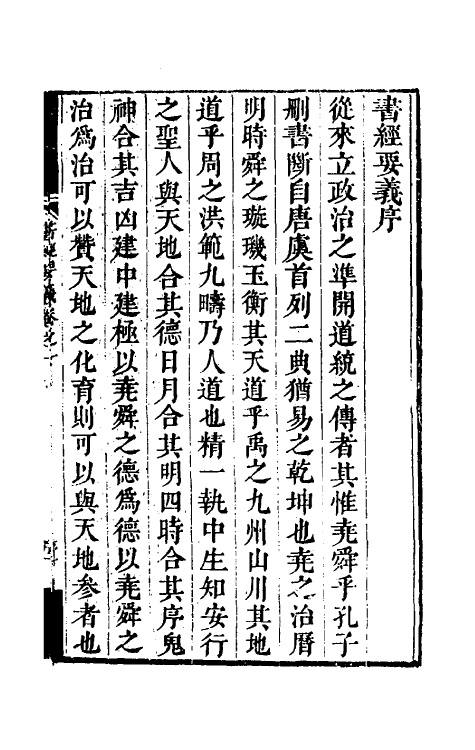 書經要義序
從來立政治之準開道統之傳者其惟堯舜乎孔子
刪書斷自唐虞首列二典猶易之乾坤也堯之治曆
明時舜之璇璣玉衡其天道乎禹之九州山川其地
道乎周之洪範九疇乃人道也精一執中生知安行
之聖人與天地合其德日月合其明四時合其序鬼
神合其吉凶建中建極以堯舜之德為德以堯舜之
治為治可以贊天地之化育則可以與天地參者也